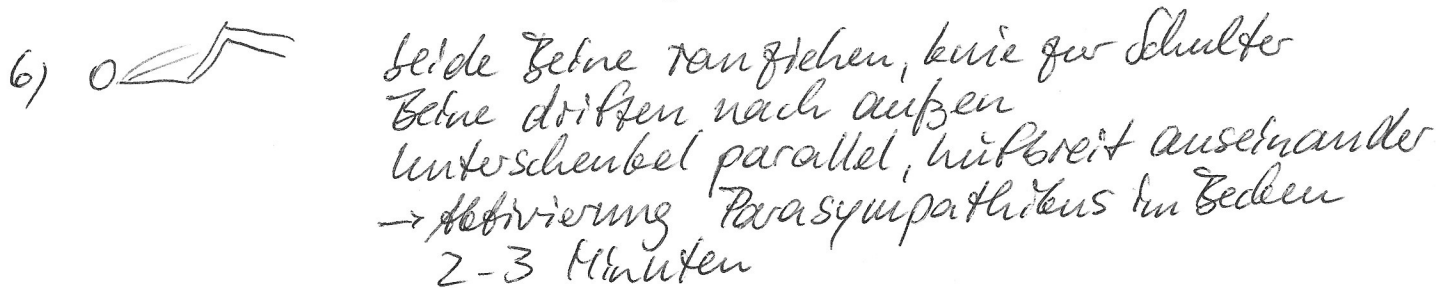 6) beide Beine ranziehen, knie zur Schulter
Beine driften nach außen
Unterschenkel parallel, hüftbreit auseinander
→ Aktivierung Parasympathikus im Becken
2-3 Minuten